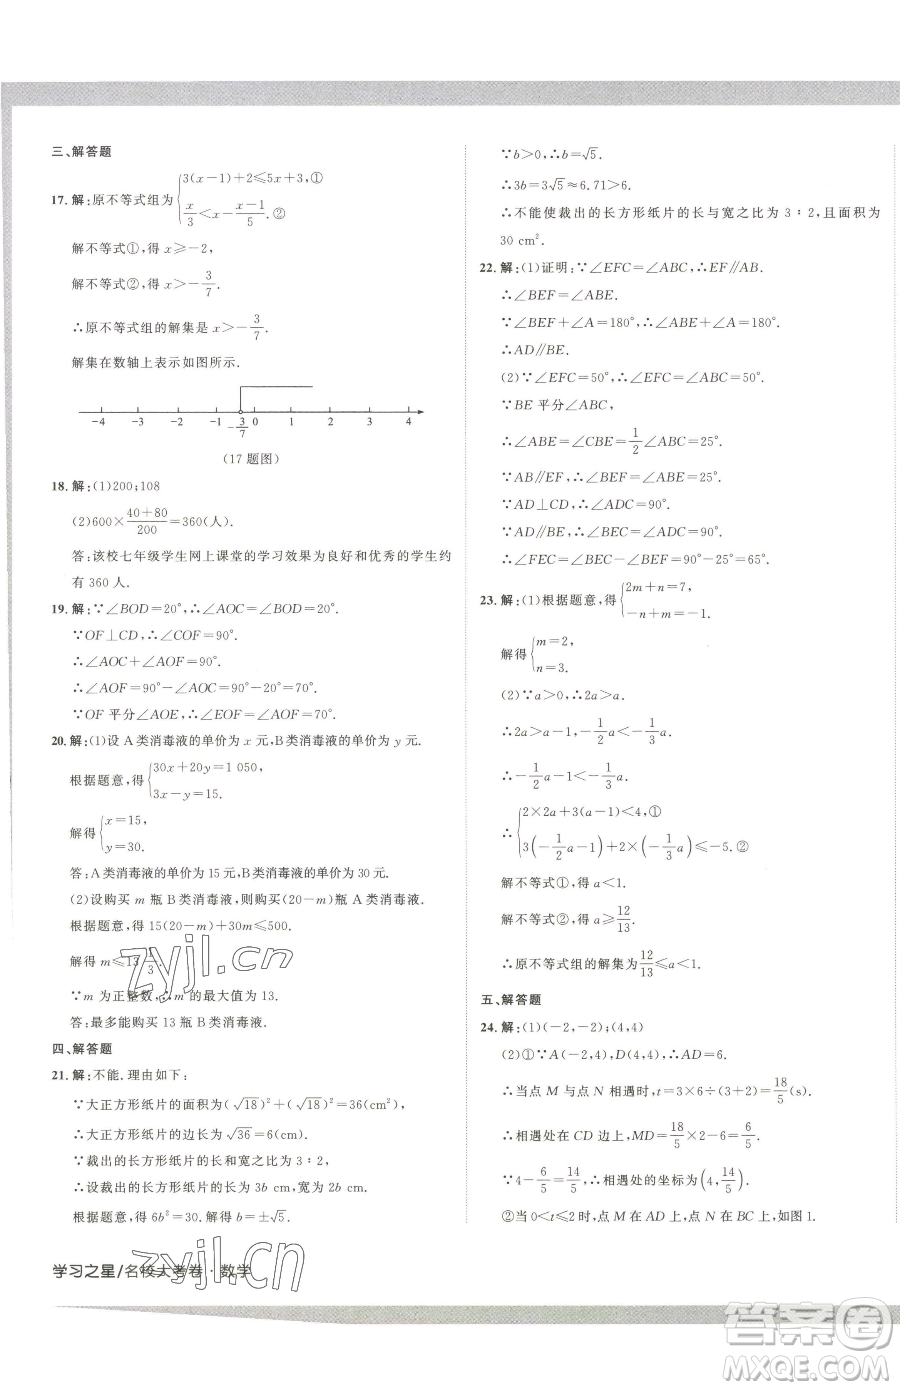 三、解答题
17. 解:原不等式组为{3(x−1)+2⩽5x+3,①
x/3<x−(x−1)/5. ②
解不等式①,得 x⩾−2,
解不等式②,得 x>−3/7.
∴原不等式组的解集是 x>−3/7.
解集在数轴上表示如图所示.
−4 −3 −2 −1 −3/7 0 1 2 3 4
(17 题图)
18. 解:(1)200;108
(2)600×(40+80)/200=360(人).
答:该校七年级学生网上课堂的学习效果为良好和优秀的学生约
有 360 人.
19. 解:∵∠BOD=20°,∴∠AOC=∠BOD=20°.
∵OF⊥CD,∴∠COF=90°.
∴∠AOC+∠AOF=90°.
∴∠AOF=90°−∠AOC=90°−20°=70°.
∵OF 平分∠AOE,∴∠EOF=∠AOF=70°.
20. 解:(1)设 A 类消毒液的单价为 x 元,B 类消毒液的单价为 y 元.
根据题意,得{30x+20y=1 050,
3x−y=15.
解得{x=15,
y=30.
答:A 类消毒液的单价为 15 元,B 类消毒液的单价为 30 元.
(2)设购买 m 瓶 B 类消毒液,则购买(20−m)瓶 A 类消毒液.
根据题意,得 15(20−m)+30m⩽500.
解得 m⩽13 /3.
∵m 为正整数,∴m 的最大值为 13.
答:最多能购买 13 瓶 B 类消毒液.
四、解答题
21. 解:不能. 理由如下:
∵大正方形纸片的面积为(√18)²+(√18)²=36(cm²),
∴大正方形纸片的边长为√36=6(cm).
∵裁出的长方形纸片的长和宽之比为 3∶2,
∴设裁出的长方形纸片的长为 3b cm,宽为 2b cm.
根据题意,得 6b²=30. 解得 b=±√5.
学习之星/名校大考卷·数学
∵b>0,∴b=√5.
∴3b=3√5≈6.71>6.
∴不能使裁出的长方形纸片的长与宽之比为 3∶2,且面积为
30 cm².
22. 解:(1)证明:∵∠EFC=∠ABC,∴EF∥AB.
∴∠BEF=∠ABE.
∵∠BEF+∠A=180°,∴∠ABE+∠A=180°.
∴AD∥BE.
(2)∵∠EFC=50°,∴∠EFC=∠ABC=50°.
∵BE 平分∠ABC,
∴∠ABE=∠CBE=1/2∠ABC=25°.
∵AB∥EF,∴∠ABE=∠BEF=25°.
∵AD⊥CD,∴∠ADC=90°.
∵AD∥BE,∴∠BEC=∠ADC=90°.
∴∠FEC=∠BEC−∠BEF=90°−25°=65°.
23. 解:(1)根据题意,得{2m+n=7,
−n+m=−1.
解得{m=2,
n=3.
(2)∵a>0,∴2a>a.
∴2a>a−1,−1/2a<−1/3a.
∴−1/2a−1<−1/3a.
∴{2×2a+3(a−1)<4,①
3(−1/2a−1)+2×(−1/3a)⩽−5. ②
解不等式①,得 a<1.
解不等式②,得 a⩾12/13.
∴原不等式组的解集为12/13⩽a<1.
五、解答题
24. 解:(1)(−2,−2);(4,4)
(2)①∵A(−2,4),D(4,4),∴AD=6.
∴当点 M 与点 N 相遇时,t=3×6÷(3+2)=18/5(s).
∴相遇处在 CD 边上,MD=18/5×2−6=6/5.
∵4−6/5=14/5,∴相遇处的坐标为(4,14/5).
②当0<t⩽2时,点 M 在 AD 上,点 N 在 BC 上,如图 1.
zyjl.cn
zyjl.cn
答案圈
MXQE.COM